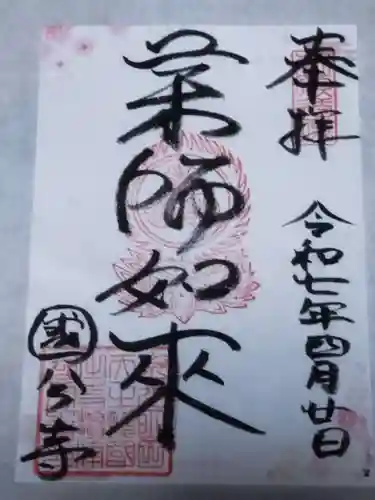 奉拝 令和七年四月廿日
薬師如来
國分寺